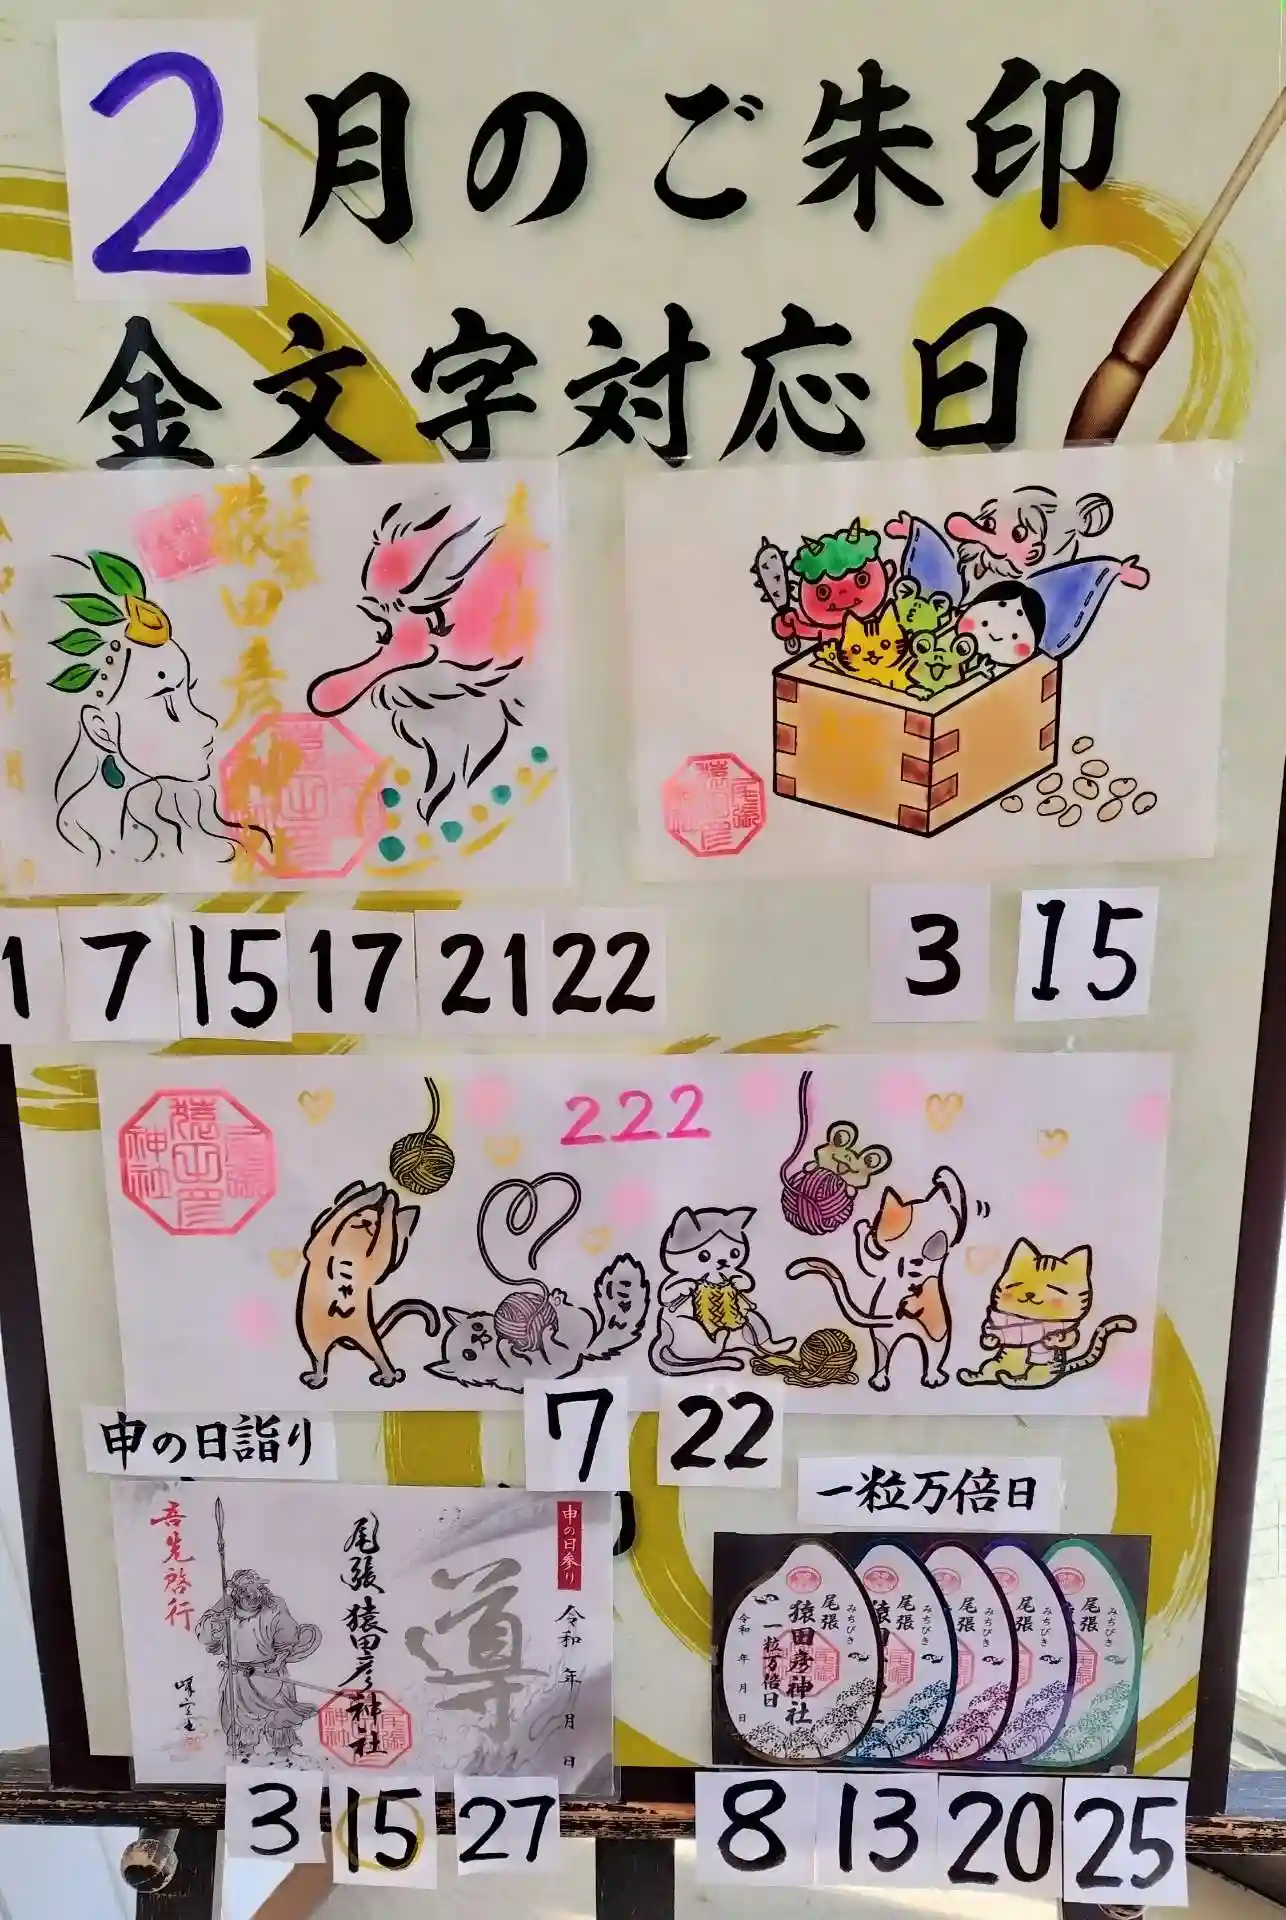 2月のご朱印
金文字対応日
猿田彦神社
1 7 15 17 21 22
3 15
222
猿田彦
神社
にゃん
にゃん
にゃん
7 22
申の日詣り
一粒万倍日
吾先啓行
尾張猿田彦神社
導
申の日参り
令和 年 月 日
3 15 27
令和 年 月 日
一粒万倍日
猿田彦神社
尾張
みちびき
尾張
みちびき
尾張
みちびき
尾張
みちびき
尾張
みちびき
8 13 20 25